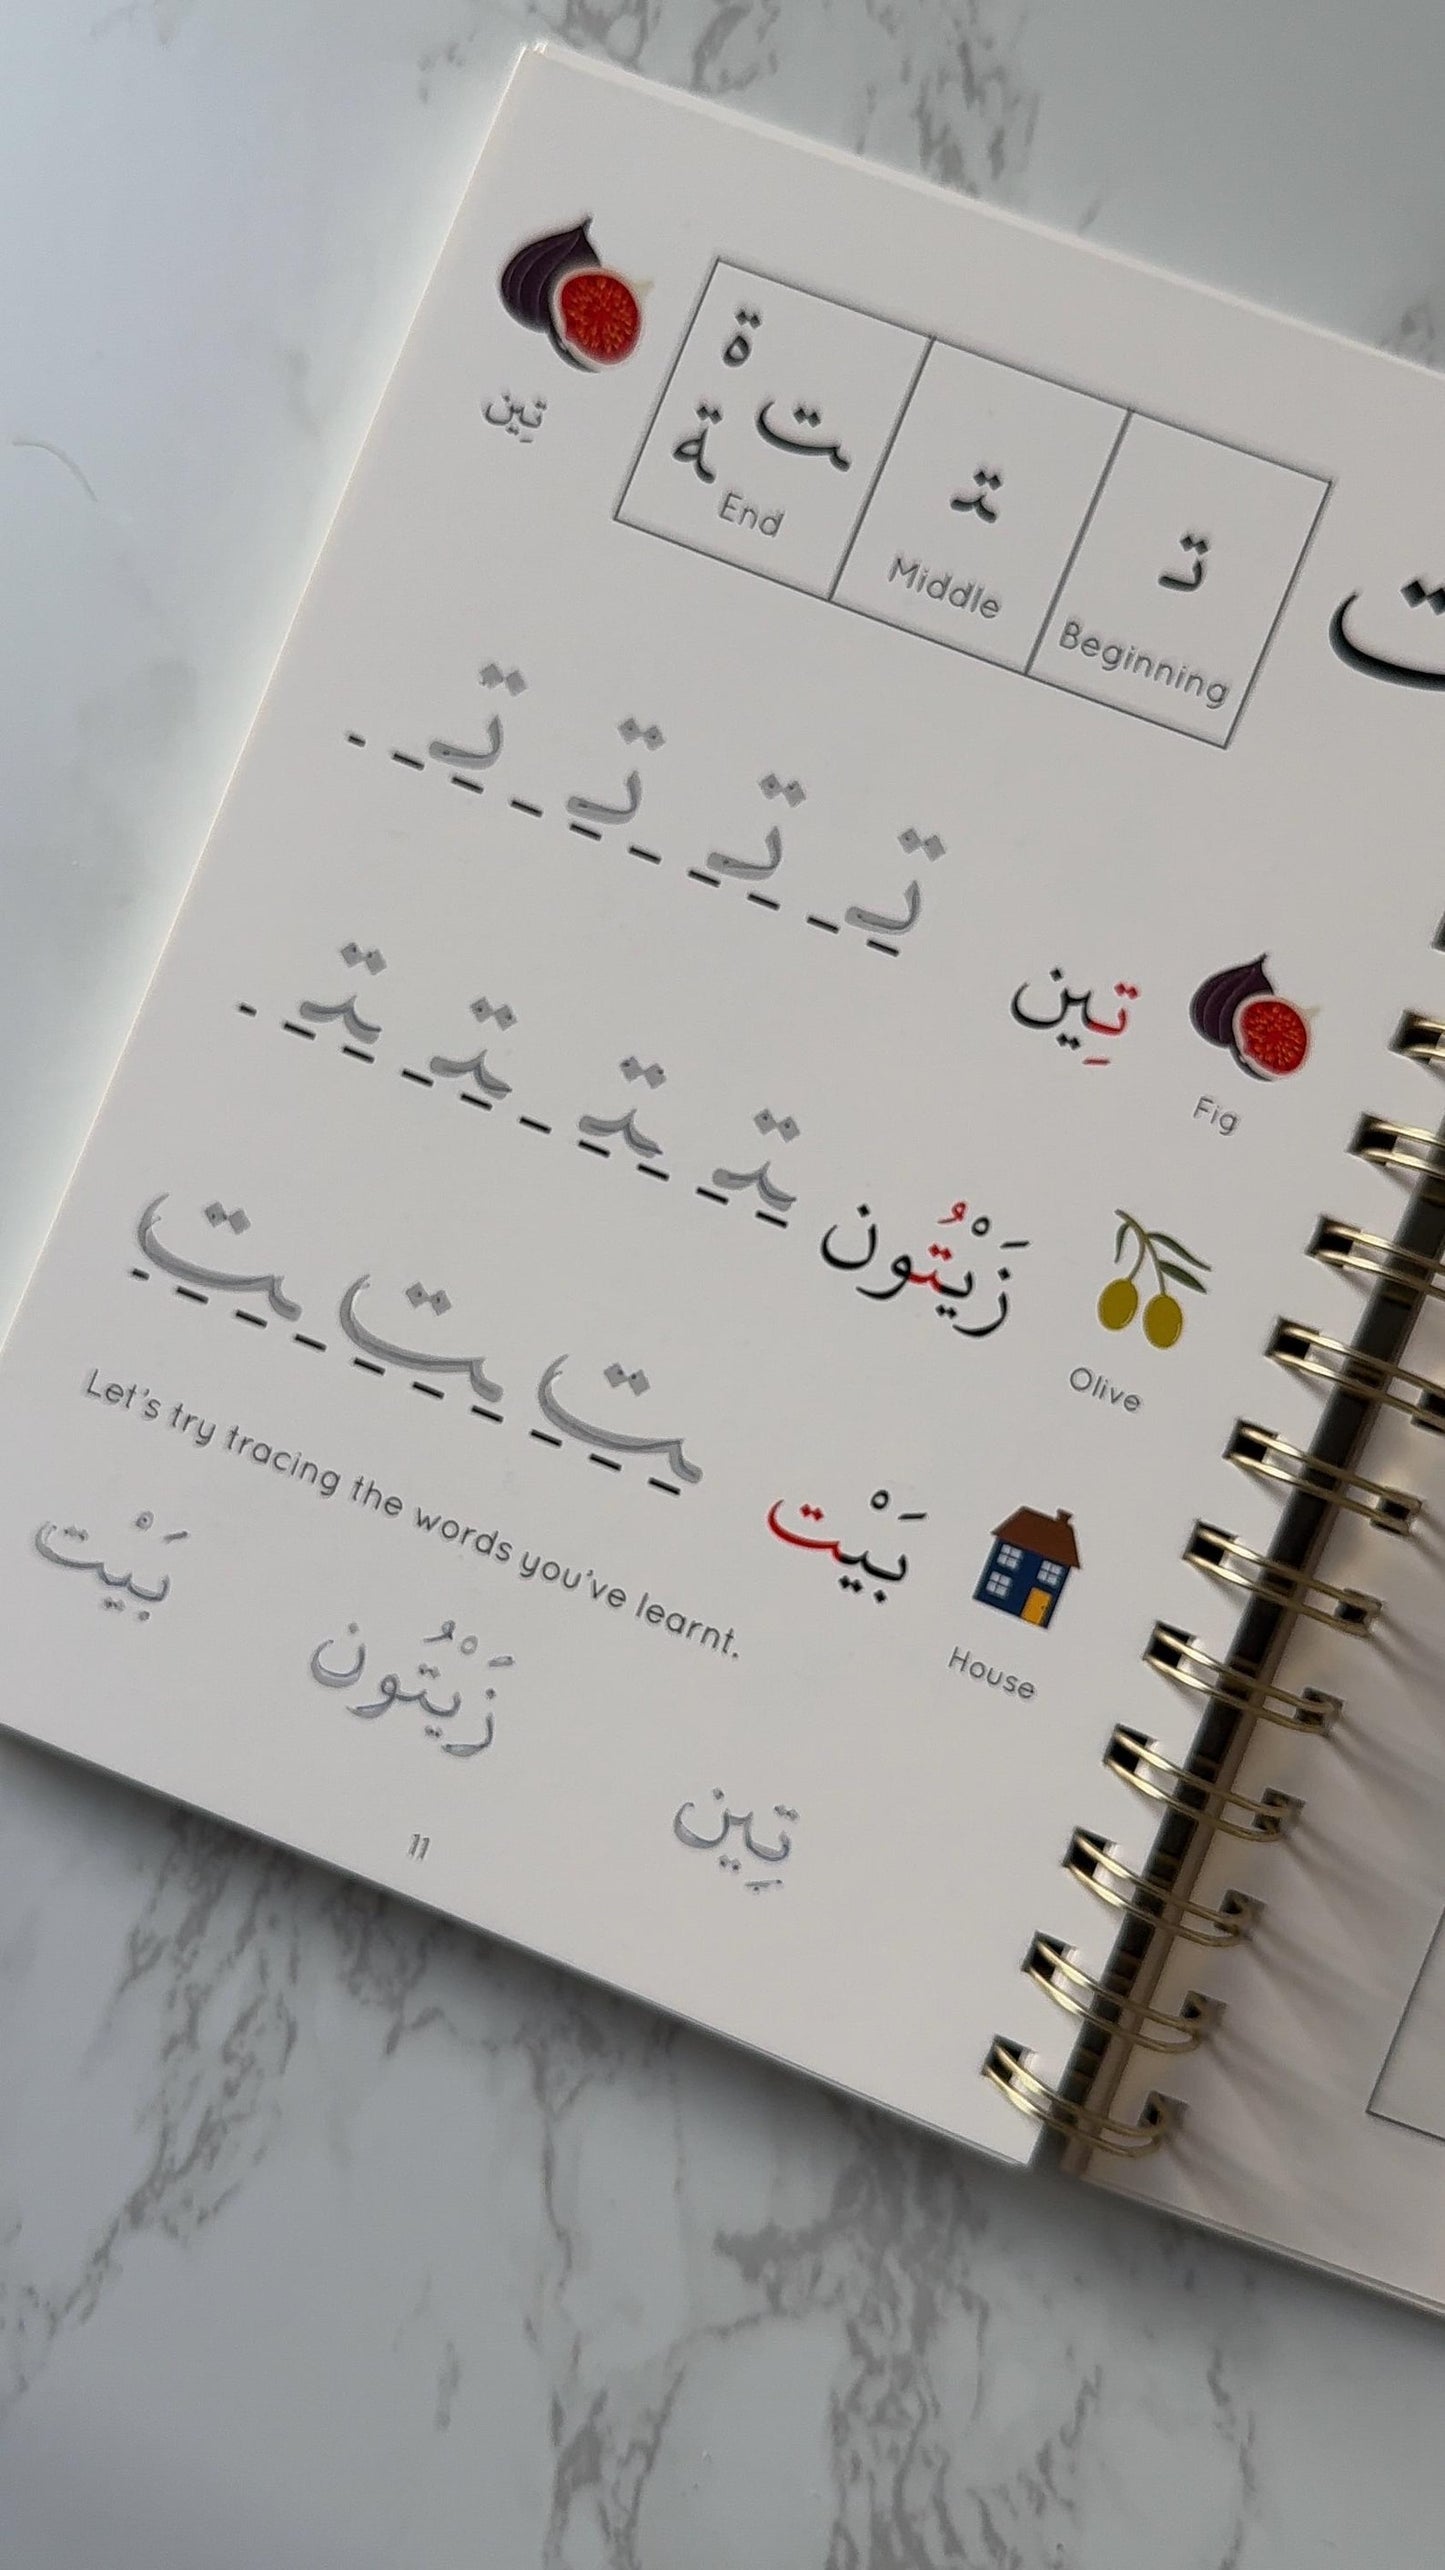 ت
تـ ـتـ ـت ة ـة
Beginning Middle End
تِين
Fig تِين تـِ تـِ تـِ تـِ
Olive زَيْتُون ـتـِ ـتـِ ـتـِ ـتـِ
House بَيْت ـتِ ـتِ ـتِ
Let's try tracing the words you've learnt.
تِين زَيْتُون بَيْت
11